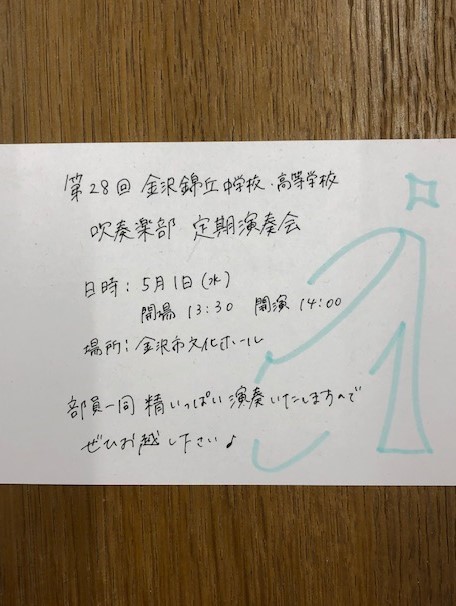 第28回 金沢錦丘中学校・高等学校
吹奏楽部 定期演奏会
日時：5月1日(水)
開場 13:30 開演 14:00
場所：金沢市文化ホール
部員一同 精いっぱい演奏いたしますので
ぜひお越し下さい♪